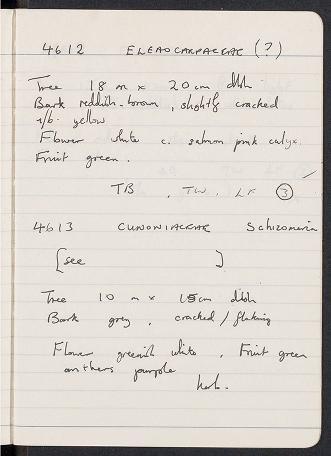 4612 ELEAOCARPACEAE (?)
Tree 18 m x 20 cm dbh.
Bark reddish-brown, slightly cracked
i/b. yellow
Flower white c. salmon pink calyx.
Fruit green.
TB, TW, LF (3)
4613 CUNONIACEAE Schizomeria
[see ]
Tree 10 m x 15cm dbh
Bark grey, cracked / flaking
Flower greenish white, Fruit green
anthers purple